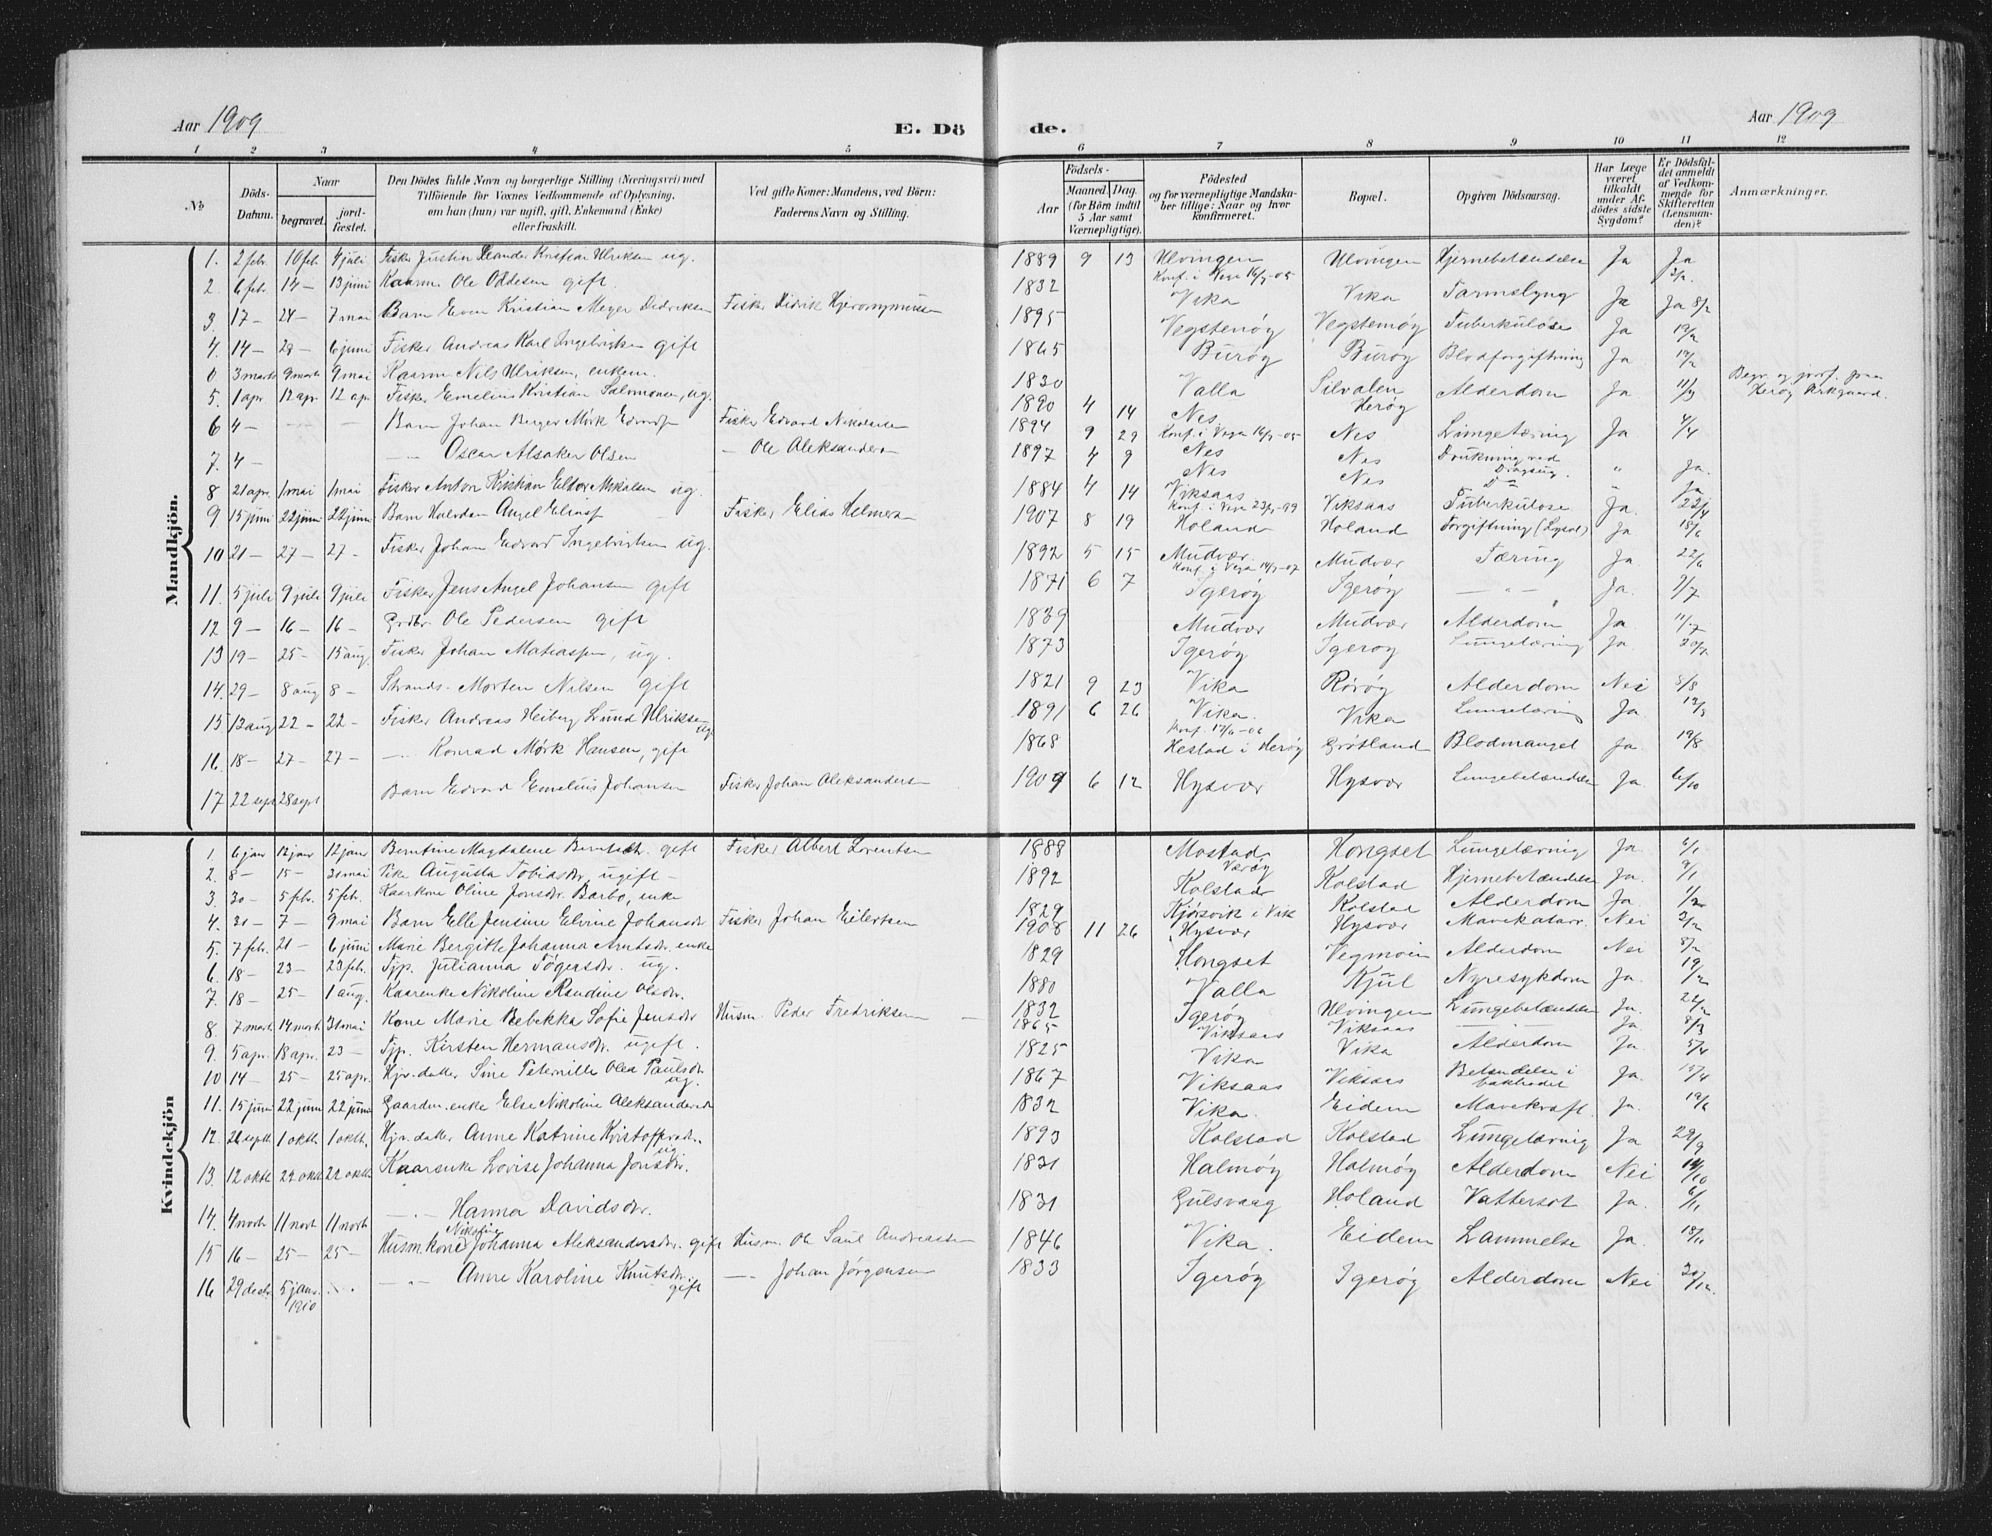 Aar 1909
E. Dö
de.
Aar 1909
1 2 3 4 5 6 7 8 9 10 11 12
No
Döds-Datum.
Naar
begravet.
jord-fæstet.
Den Dödes fulde Navn og borgerlige Stilling (Næringsvei) med
Tilföiende for Voxnes Vedkommende af Oplysning,
om han (hun) var ugift, gift, Enkemand (Enke)
eller fraskilt.
Ved gifte Koner: Mandens, ved Börn:
Faderens Navn og Stilling.
Födsels-
Aar
Maaned. Dag.
(for Börn indtil
5 Aar samt
Værnepligtige).
Födested
og for værnepligtige Mandska-
ber tillige: Naar og hvor
konfirmeret.
Bopæl.
Opgiven Dödsaarsag.
Har Læge
været
tilkaldt
under Af-
dödes sidste
Sygdom?
Er Dödsfal-
det anmeldt
af Vedkom-
mende for
Skifteretten
(Lensman-
den)?
Anmærkninger.
Mandkjön.
1. 2 febr. 10 feb. 4 juli Fisker Justin Leander Kristian Ulriksen ug. 1889 9 13 Ulvingen Konf. i Vega 16/7-05 Ulvingen Hjernebetændelse Ja Ja
2. 6 feb. 14 - 13 juni Kaarm. Ole Oddesen gift. 1832 Vika Vika Tarmslyng Ja Ja 8/2
3. 17 - 24 - 7 mai Barn Even Kristian Meyer Didriksen Fisker Didrik Hjeronymussen 1895 Vegstenøy Vegstenøy Tuberkuløse Ja 19/2
4. 14 - 29 - 6 juni Fisker Andreas Karl Ingebrigtsen gift 1865 Burøy Burøy Blodforgiftning Ja 17/2
0 3 marts 9 marts 9 mai Kaarm. Nils Ulriksen, enkem. 1830 Valla Silvalen Herøy Alderdom Ja 11/3 Begr. og jordf. paa Herøy Kirkgaard.
5. 1 apr 12 apr 12 ap. Fisker Emelius Kristian Salomonsen, ug. 1890 4 14 Nes Konf. i Vega 16/7-05 Nes Lungetæring Ja 4/4
6 4 - Barn Johan Berger Mørk Edvards. Fisker Edvard Nikolaisen 1894 9 29 Nes Nes Drukning ved Dragsug. " Ja.
7. 4 - -"- Oscar Alsaker Olsen - Ole Aleksandersen 1897 4 9 Nes Nes D° " Ja
8 21 apr. 1 mai 1 mai Fisker Anton Kristian Elder Mikalsen ug. 1884 4 14 Viksaas Konf. i Vega 23/7-99 Viksaas Tuberkulose Ja. 22/4
9 15 juni 22 juni 22 juni Barn Halvdan Angel Eliass. Fisker Elias Helmersen 1907 8 19 Holand Holand Forgiftning (Lysol) Ja 18/6
10 21 - 27 - 27 - Fisker Johan Edvard Ingebrigtsen ug. 1892 5 15 Mudvær Konf. i Vega 14/7-07 Mudvær Tæring Ja. 22/6
11. 5 juli 9 juli 9 juli Fisker Jens Angel Johansen gift 1871 6 7 Igerøy Igerøy -"- Ja. 7/7
12 9 - 16 - 16 - Grdbr. Ole Pedersen gift 1839 Mudvær Mudvær Alderdom Ja 11/7
13 19 - 25 - 15 aug. Fisker Johan Matiassen, ug. 1873 Igerøy Igerøy Lungetæring Ja 20/7
14. 29 - 8 aug 8 - Strands. Morten Nilsen gift 1821 9 23 Vika Rørøy Alderdom Nei 8/8
15 13 aug 22 - 22 - Fisker Andreas Heiberg Lund Ulriksen ug. 1891 6 26 Vika. Konf. 17/6-06 Vika Lungetæring Ja.
16. 18 - 27 - 27 - -"- Konrad Mørk Hansen, gift 1868 Hestad i Herøy Grøtland Blodmangel Ja. 19/8
17 22 sept 28 sept Barn Edvard Emelius Johansen Fisker Johan Aleksandersen 1909 6 12 Hysvær Hysvær Lungebetændelse Ja 6/10
Kvindekjön
1. 6 janr 12 janr 12 janr Berntine Magdalene Berntsdtr. gift Fisker Albert Lorentsen 1888 Mostad Værøy Hongset Lungetæring Ja. 6/1
2. 8 - 15 - 31 mai Pike Augusta Tobiasdtr ugift - 1892 Kolstad Kolstad Hjernebetændelse Ja. 9/1
3. 30 - 5 feb. 5 feb. Kaarkone Oline Jonsdtr. Barbo, enke 1829 Kjørsvik i Vik Kolstad Alderdom Ja. 1/2
4. 31 - 7 - 9 mai Barn Elle Jensine Elvine Johansdtr Fisker Johan Eilertsen 1908 11 26 Hysvær Hysvær Mavekatarr. Nei 2/2
5. 7 feb. 21 - 6 juni Marie Bergitte Johanna Arntsdtr. enke 1829 Hongset Vegmoen Alderdom Nei 8/2
6. 18 - 23 - 23 feb. Tjp. Julianna Tøgersdtr. ug. 1880 Valla Kjul Nyresykdom Ja. 19/2
7. 18 - 25 - 1 aug. Kaarenke Nikoline Randine Olsdtr. 1832 Igerøy Ulvingen Lungebetændelse Ja. 24/2
8. 7 mart. 14 mart. 31 mai Kone Marie Rebekka Sofie Jensdtr Husm. Peder Fredriksen 1865 Viksaas Viksaas - Ja. 8/3
9. 5 apr. 18 apr. 23 - Tjp. Kirsten Hermansdtr. ugift. 1825 Vika Vika Alderdom Ja. 5/4
10 14 - 25 - 25 apr. Hjv. datter Sine Peternille Olea Paulsdtr. ug. 1867 Viksaas Viksaas Betændelse i bukhodet Ja. 15/4
11. 15 juni 22 juni 22 juni Gaardm. enke Else Nikoline Aleksandersd 1832 Vika. Eidem Mavekræft. Ja. 19/6
12. 26 septb 1 oktb. 1 oktb. Hjv. datter Anne Katrine Kristoffersdtr. ug. 1893 Kolstad Kolstad Lungetæring Ja 29/9
13. 12 oktb 22 oktb 22 oktb Kaarenke Lovise Johanna Jonsdtr. 1831 Halmøy Halmøy Alderdom Nei 14/10
14. 4 novb 11 novb 11 novb -"- Hanna Davidsdtr. 1831 Gulsvaag Holand Vattersot Ja. 6/11
15 16 - 25 - 25 - Husm. kone Nikoline Johanna Aleksandersdtr. gift Husm. Ole Saul Andreassen 1846 Vika. Eidem Lammelse Ja. 18/11
16 29 decbr. 5 janr. 1910 -"- Anne Karoline Knutsdtr. gift -"- Johan Jørgensen 1833 Igerøy Igerøy Alderdom Nei 30/12.